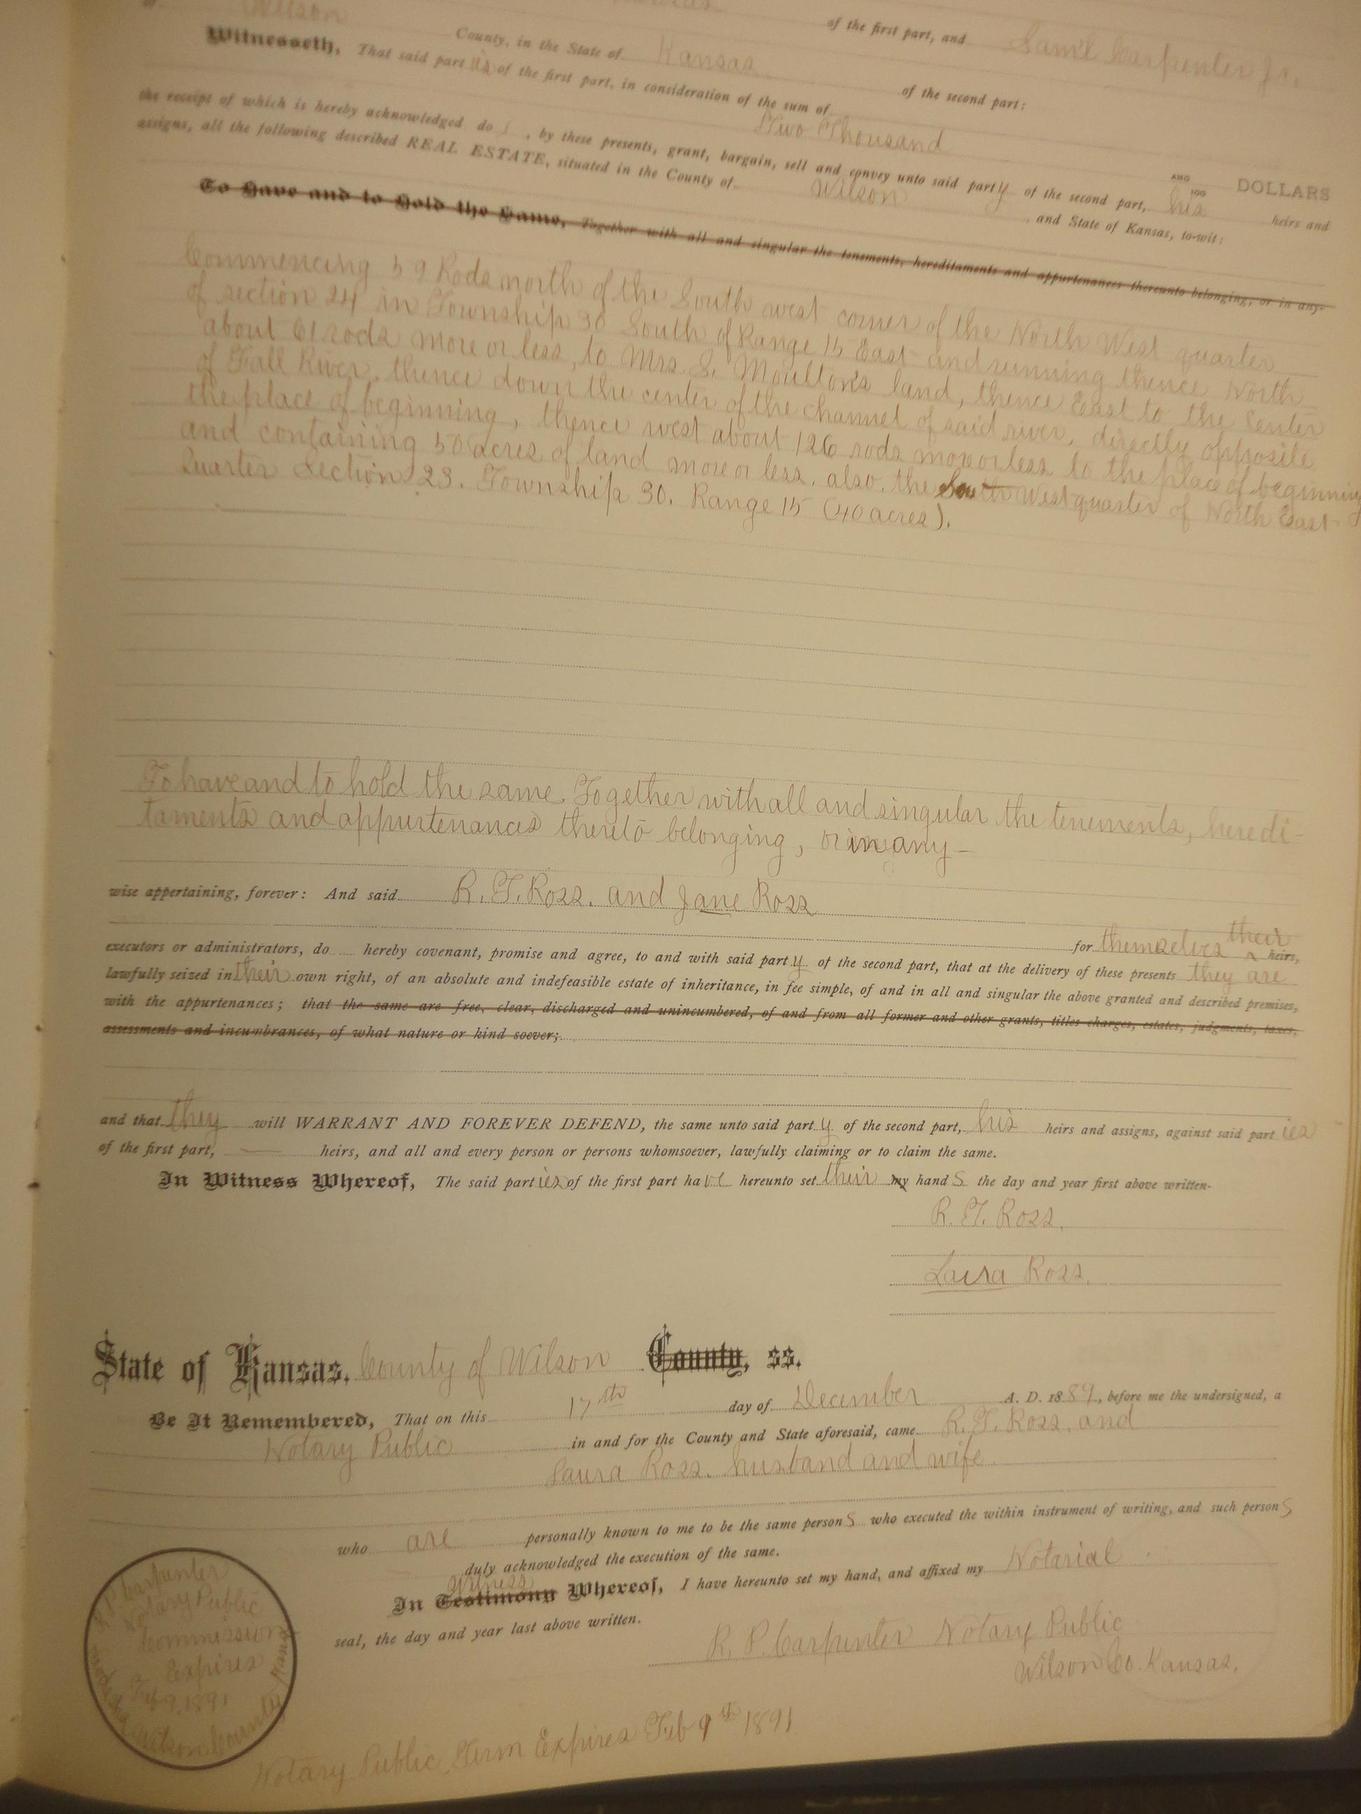 Wilson County, in the State of Kansas of the first part, and Sam'l Carpenter Jr.
of the second part:
Witnesseth, That said parties of the first part, in consideration of the sum of
Two Thousand AND /100 DOLLARS
the receipt of which is hereby acknowledged do , by these presents, grant, bargain, sell and convey unto said party of the second part, his heirs and
assigns, all the following described REAL ESTATE, situated in the County of Wilson , and State of Kansas, to-wit:
To Have and to Hold the Same, Together with all and singular the tenements, hereditaments and appurtenances thereunto belonging, or in any-
Commencing 59 Rods north of the South west corner of the North West quarter
of section 24 in Township 30 South of Range 15 East and running thence North
about 61 rods more or less, to Mrs. S. Moulton's land, thence East to the Center
of Fall River, thence down the center of the channel of said river, directly opposite
the place of beginning, thence west about 126 rods more or less to the place of beginning
and containing 50 acres of land more or less, also, the South West quarter of North East
Quarter Section 23. Township 30. Range 15 (40 acres).
To have and to hold the same, Together with all and singular the tenements, heredi-
taments and appurtenances thereto belonging, or in any-
wise appertaining, forever: And said R. T. Ross. and Jane Ross
for themselves their heirs,
executors or administrators, do hereby covenant, promise and agree, to and with said party of the second part, that at the delivery of these presents they are
lawfully seized in their own right, of an absolute and indefeasible estate of inheritance, in fee simple, of and in all and singular the above granted and described premises,
with the appurtenances; that the same are free, clear, discharged and unincumbered, of and from all former and other grants, titles charges, estates, judgments, taxes,
assessments and incumbrances, of what nature or kind soever;
and that they will WARRANT AND FOREVER DEFEND, the same unto said party of the second part, his heirs and assigns, against said parties
of the first part, heirs, and all and every person or persons whomsoever, lawfully claiming or to claim the same.
In Witness Whereof, The said parties of the first part have hereunto set their my hands the day and year first above written.
R. T. Ross.
Laura Ross.
State of Kansas, County of Wilson County, ss.
Be It Remembered, That on this 17th day of December A. D. 1889, before me the undersigned, a
Notary Public in and for the County and State aforesaid, came R. T. Ross, and
Laura Ross. husband and wife
who are personally known to me to be the same persons who executed the within instrument of writing, and such persons
duly acknowledged the execution of the same.
Witness
In Testimony Whereof, I have hereunto set my hand, and affixed my Notarial
seal, the day and year last above written.
R. P. Carpenter Notary Public
Wilson Co. Kansas.
R P Carpenter
Notary Public
Commission
Expires
Feb 9, 1891
Wilson County
Notary Public Term Expires Feb 9th 1891